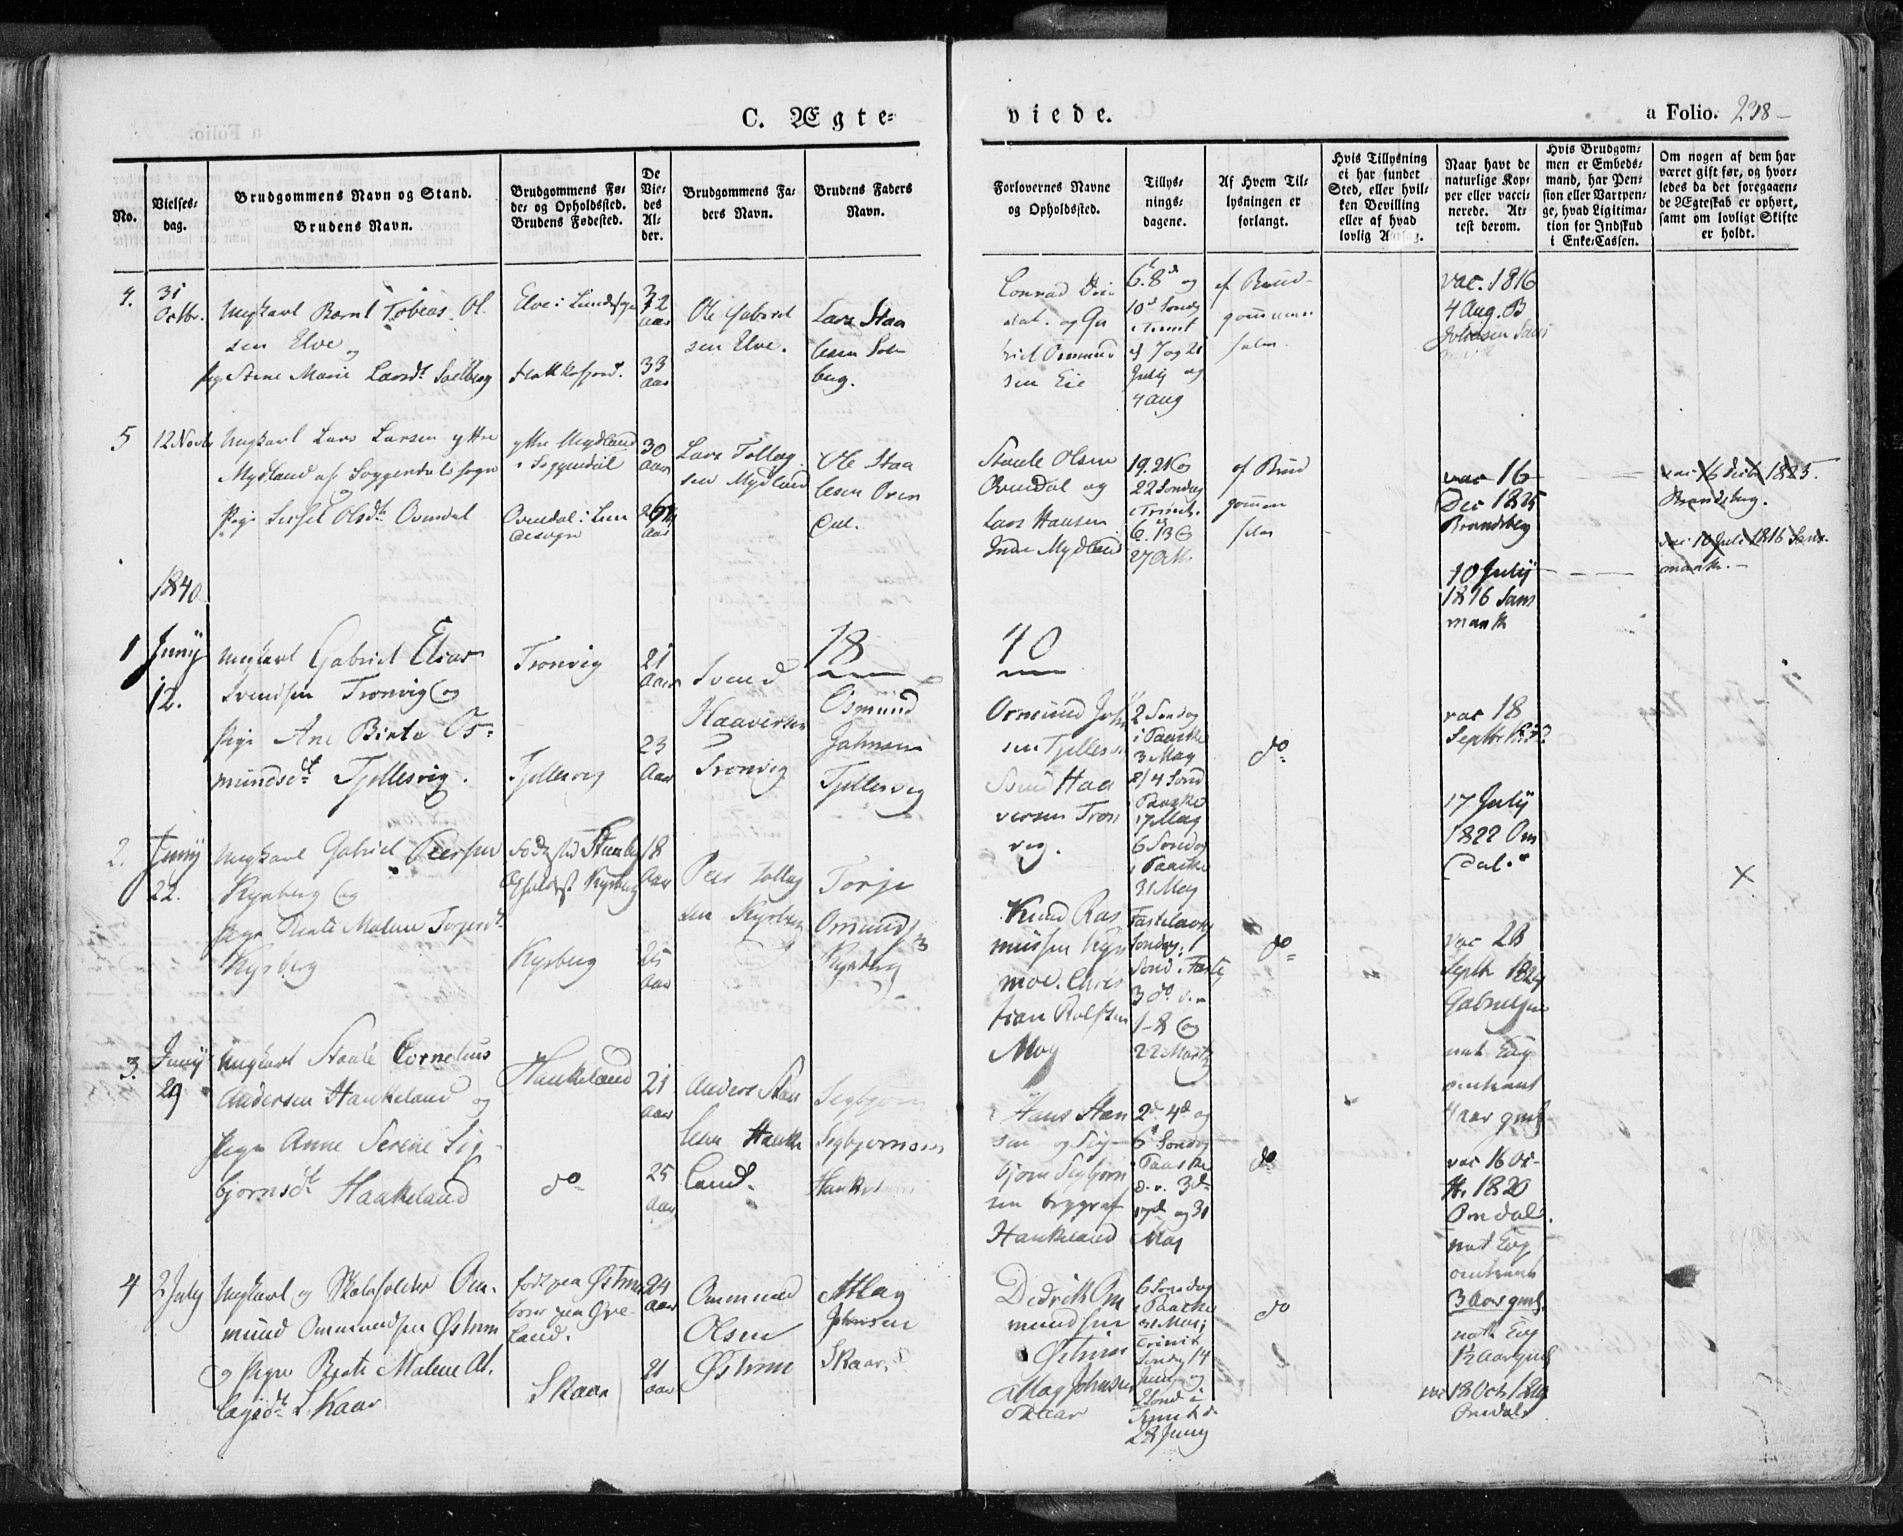 C. Ægte-
viede.
a Folio. 238
No.
Vielses-
dag.
Brudgommens Navn og Stand.
Brudens Navn.
Brudgommens Fø-
de- og Opholdssted.
Brudens Fødested.
De
Vie-
des
Al-
der.
Brudgommens Fa-
ders Navn.
Brudens Faders
Navn.
Forlovernes Navne
og Opholdssted.
Tillys-
nings-
dagene.
Af Hvem Til-
lysningen er
forlangt.
Hvis Tillysning
ei har fundet
Sted, eller hvil-
ken Bevilling
eller af hvad
lovlig
Naar havt de
naturlige Kop-
per eller vacci-
nerede. At-
test derom.
Hvis Brudgom-
men er Embeds-
mand, har Pen-
sion eller Vartpen-
ge, hvad Ligitima-
tion for Indskud
i Enke-Cassen.
Om nogen af dem har
været gift før, og hvor-
ledes da det foregaaen-
de Ægteskab er ophørt,
samt om lovligt Skifte
er holdt.
4.
31
Octbr.
Ungkarl Bernt Tobias Ol
sen Elve
og
Pige Stene Marie Larsdt Solberg
Elve i Lunde
Flekkefjord.
32
aar
33
aar
Ole Gabriel
sen Elve.
Lars Staa
lesen Sol
berg.
Conrad
og Ga
briel Ommund
sen Eie
6. 8de og
10de Sondg
e Trinit
d 7 og 21
July og
4 aug
af Brud
gommen
selv.
vac. 1816
4 Aug. B
5
12 Novbr
Ungkarl Lars Larsen yttre
Mydland af Soggendals sogn
Pige Sirset Olsdt Ovendal
yttre Mydland
i Soggendal
Ovendal i Lun
desogn
30
aar
26
aar
Lars Tolleg
sen Mydland
Ole Staa
lesen Oven
dal.
Staale Olsen
Ovendal og
Lars Hansen
Indre Mydland
19. 21 og
22 Sondag
e Trinit.
6. 13 og
27 Oct.
af Brud
gommen
selv
vac 16
Dec 1825
Brandsberg
10 July
1816 Sans
mark
vac 16 Decb 1825.
Brandsberg.
vac 10 Juli 1816 Sans-
mark.
1840
18
40
1
Juny
12.
Ungkarl Gabriel Elias
Svendsen Tronvig og
Pige Ane Birte Os-
mundsdt Tjellesvig.
Tronvig
Tjellesvig
21
Aar
23
Aar
Svend
Haaversen
Tronvig
Osmund
Johnsen
Tjellesvig
Osmund John
sen Tjellesvi
Svend Haa
versen Tron
vig.
2 Sondag
i Paaske
3 May
4 Sond
Paaske
17 May
6 Sondag
i Paaske
31 May
do
vac 18
Septbr
17 July
1822 Om
dal.
2.
Juny
22.
Ungkarl Gabriel Peersen
Kysberg og
Pige Birte Malene Torjesdt
Kysberg
Kysberg
18
Aar
25
Aar
Peer Tolleg
sen Kysberg
Torje
Omunds
Kysberg
Knud Ras
mussen Kys
moe. Chris
tian Rolfsen
Moy
Fastelavns
Sondag,
Sond. i Faste
3 do
1-8 og
22 Marts
do
vac 28
Septb 1824
Gabrielsen
X
3.
Juny
29
Ungkarl Staale Cornelius
Andersen Haukeland og
Pige Anne Serine Sig-
bjornsdt Haukeland
Haukeland
do
21
aar
25
aar
Anders Staa
lesen Hauke
land.
Segbjorn
Segbjornsen
Hauke
Hans Han
sen og Sig
bjorn Segbjorn
sen begge af
Haukeland
2d 4d og
6d Sondag
i Paaske
d.v. 3d
17d og 31
May
do
nat Eug
omtrent
4 aar gml.
vac 16 Oc-
tb. 1820
Omdal.
4
2 July
Ungkarl og Skoleholder Om-
mund Ommundsen Østrem
og Pige Berte Malene At-
lagsdt Skaar
fodt paa Østrem
boer paa Qve-
land.
Skaar
24
aar
21
aar
Ommund
Olsen
Østrem
Atlag
Johnsen
Skaar.
Didrik Om
mundsen
Østrem
Atlag Johnsen
Skaar
6 Sondag
i Paaske
31 May
Trinit
Sondg 14
Juny og
2 Sond i
Trinit d
28 Juny
do
nat Eug
omtrent
3 Aar gml.
nat Eug
1½ aar gml
vac 18 Oct 1819
Omdal